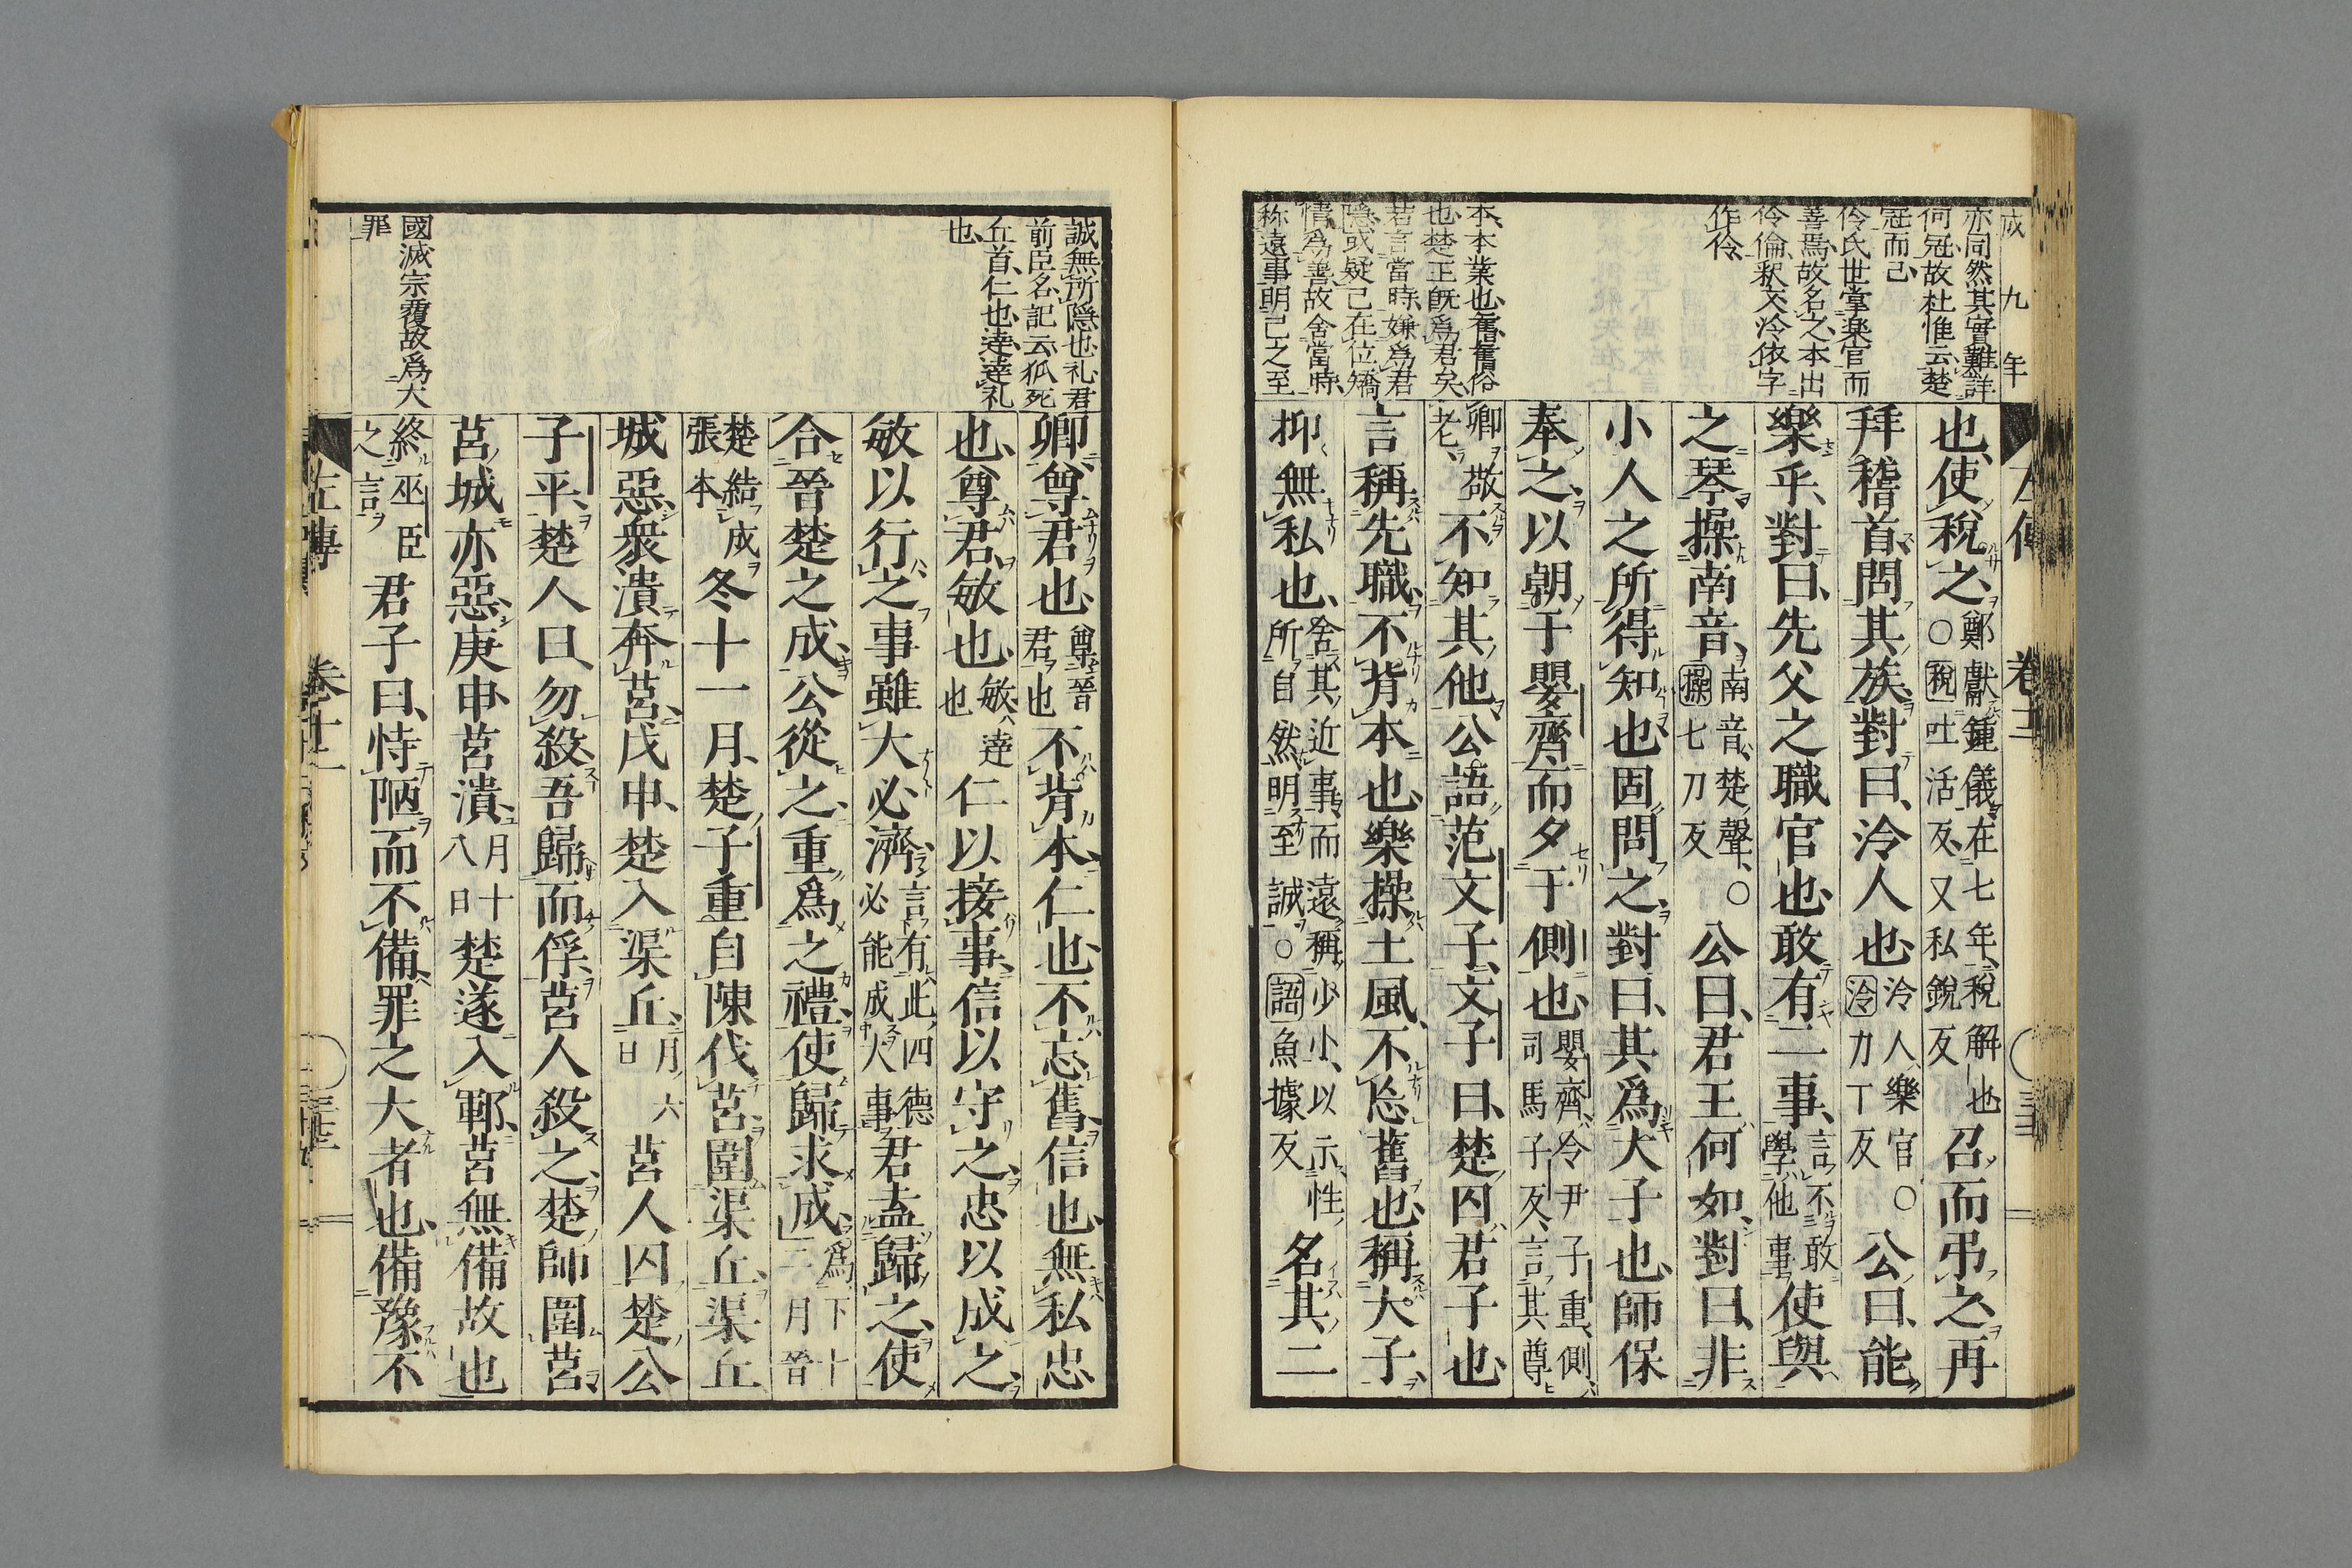 成九年
亦同然其實難詳
何冠故杜惟云楚
冠而已
伶氏世掌楽官而
善焉故名之本出
伶倫釈文泠依字
作伶
本本業也舊舊俗
也楚王既爲君矣
若言當時嫌爲君
隠或疑己在位矯
情爲善故舍當時
称遠事明己之至
也使稅之鄭獻鍾儀在七年稅解也○稅吐活反又私銳反召而弔之再
拜稽首問其族對曰泠人也泠人樂官○泠力丁反公曰能
樂乎對曰先父之職官也敢有二事言不敢學他事使與
之琴操南音南音楚聲○操七刀反公曰君王何如對曰非
小人之所得知也固問之對曰其爲大子也師保
奉之以朝于嬰齊而夕于側也嬰齊令尹子重側司馬子反言其尊
卿敬老不知其他公語范文子文子曰楚囚君子也
言稱先職不背本也樂操土風不忘舊也稱大子
抑無私也舍其近事而遠稱少小以示性所自然明至誠○語魚據反名其二
誠無所隠也礼君
前臣名記云狐死
丘首仁也逹逹礼
也
國滅宗覆故爲大
罪
卿尊君也尊晉君也不背本仁也不忘舊信也無私忠
也尊君敏也敏逹也仁以接事信以守之忠以成之
敏以行之事雖大必濟言有此四德必能成大事君盍歸之使
合晉楚之成公從之重爲之禮使歸求成爲下十二月晉
楚結成張本冬十一月楚子重自陳伐莒圍渠丘渠丘
城惡衆潰奔莒戊申楚入渠丘月六日莒人囚楚公
子平楚人曰勿殺吾歸而俘莒人殺之楚師圍莒
莒城亦惡庚申莒潰月十八日楚遂入鄆莒無備故也
終巫臣之言君子曰恃陋而不備罪之大者也備豫不
左傳 卷十二